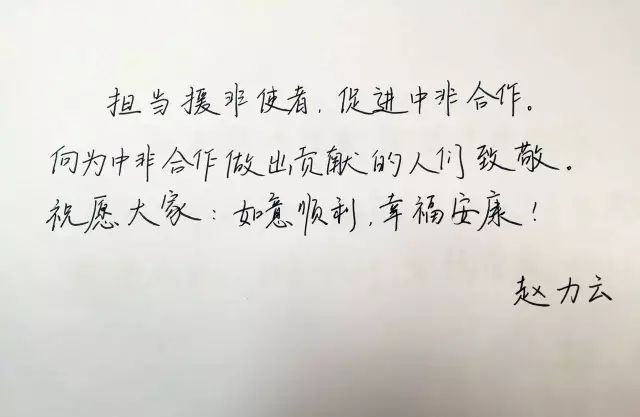 担当援非使者，促进中非合作。
向为中非合作做出贡献的人们致敬。
祝愿大家：如意顺利，幸福安康！
赵力云